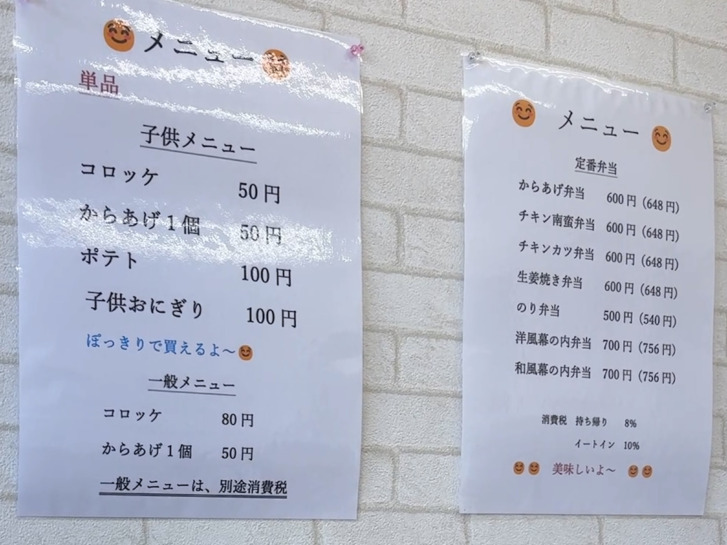 メニュー
単品
子供メニュー
コロッケ 50円
からあげ1個 50円
ポテト 100円
子供おにぎり 100円
ぽっきりで買えるよ～
一般メニュー
コロッケ 80円
からあげ1個 50円
一般メニューは、別途消費税
メニュー
定番弁当
からあげ弁当 600円（648円）
チキン南蛮弁当 600円（648円）
チキンカツ弁当 600円（648円）
生姜焼き弁当 600円（648円）
のり弁当 500円（540円）
洋風幕の内弁当 700円（756円）
和風幕の内弁当 700円（756円）
消費税 持ち帰り 8%
イートイン 10%
美味しいよ～